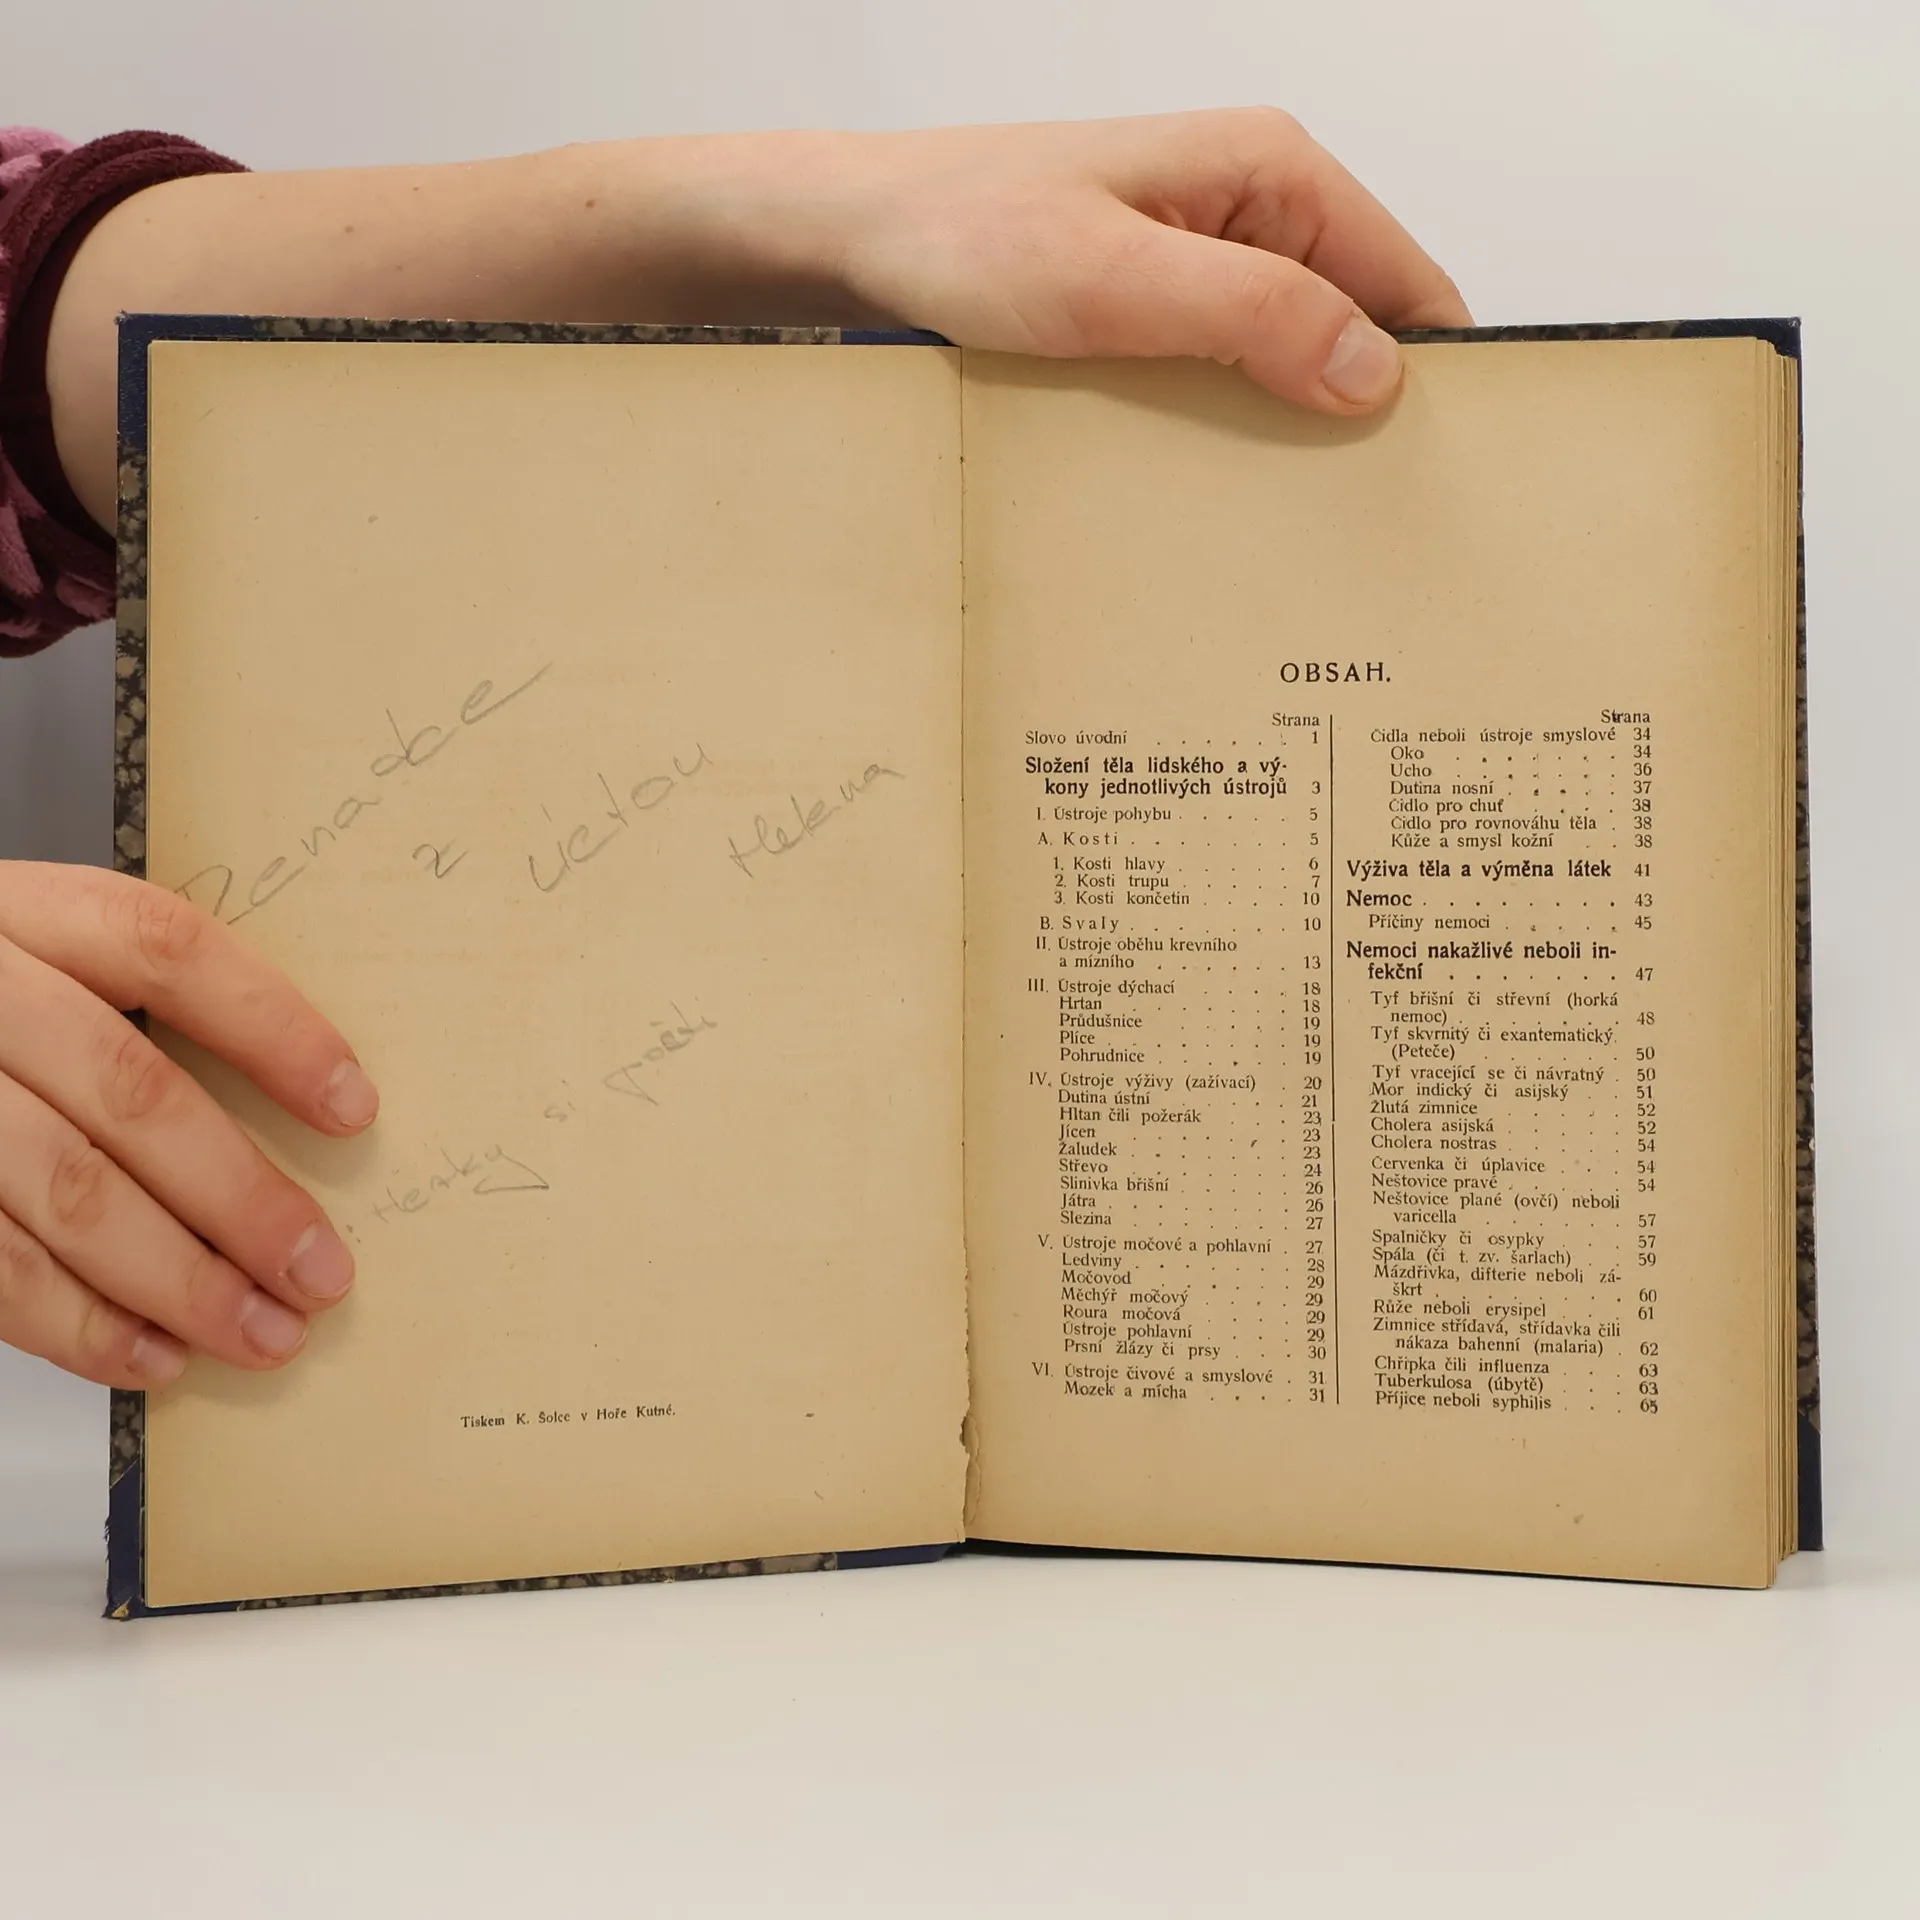 z
Tiskem K. Šolce v Hoře Kutné.
OBSAH.
Strana
Slovo úvodní . . . . . . 1
Složení těla lidského a vý-
kony jednotlivých ústrojů 3
I. Ústroje pohybu . . . . . 5
A. Kosti . . . . . . . 5
1. Kosti hlavy . . . . . 6
2. Kosti trupu . . . . . 7
3. Kosti končetin . . . . 10
B. Svaly . . . . . . . 10
II. Ústroje oběhu krevního
a mízního . . . . . . 13
III. Ústroje dýchací . . . . 18
Hrtan . . . . . . . 18
Průdušnice . . . . . 19
Plíce . . . . . . . 19
Pohrudnice . . . . . . 19
IV. Ústroje výživy (zažívací) . 20
Dutina ústní . . . . . 21
Hltan čili požerák . . . 23
Jícen . . . . . . . 23
Žaludek . . . . . . . 23
Střevo . . . . . . . 24
Slinivka břišní . . . . . 26
Játra . . . . . . . . 26
Slezina . . . . . . . 27
V. Ústroje močové a pohlavní . 27
Ledviny . . . . . . . 28
Močovod . . . . . . 29
Měchýř močový . . . . 29
Roura močová . . . . 29
Ústroje pohlavní . . . . 29
Prsní žlázy či prsy . . . 30
VI. Ústroje čivové a smyslové . 31
Mozek a mícha . . . . 31
Strana
Čidla neboli ústroje smyslové 34
Oko . . . . . . 34
Ucho . . . . . . . 36
Dutina nosní . . . . . 37
Čidlo pro chuť . . . . 38
Čidlo pro rovnováhu těla . 38
Kůže a smysl kožní . . 38
Výživa těla a výměna látek 41
Nemoc . . . . . . . . 43
Příčiny nemoci . . . . . 45
Nemoci nakažlivé neboli in-
fekční . . . . . . . 47
Tyf břišní či střevní (horká
nemoc) . . . . . . . 48
Tyf skvrnitý či exantematický
(Peteče) . . . . . . 50
Tyf vracející se či návratný . 50
Mor indický či asijský . . 51
Žlutá zimnice . . . . . 52
Cholera asijská . . . . . 52
Cholera nostras . . . . . 54
Červenka či úplavice . . . 54
Neštovice pravé . . . . . 54
Neštovice plané (ovčí) neboli
varicella . . . . . . 57
Spalničky či osypky . . . 57
Spála (či t. zv. šarlach) . . 59
Mázdřivka, difterie neboli zá-
škrt . . . . . . . . 60
Růže neboli erysipel . . . 61
Zimnice střídavá, střídavka čili
nákaza bahenní (malaria) . 62
Chřipka čili influenza . . . 63
Tuberkulosa (úbytě) . . . 63
Příjice neboli syphilis . . . 65